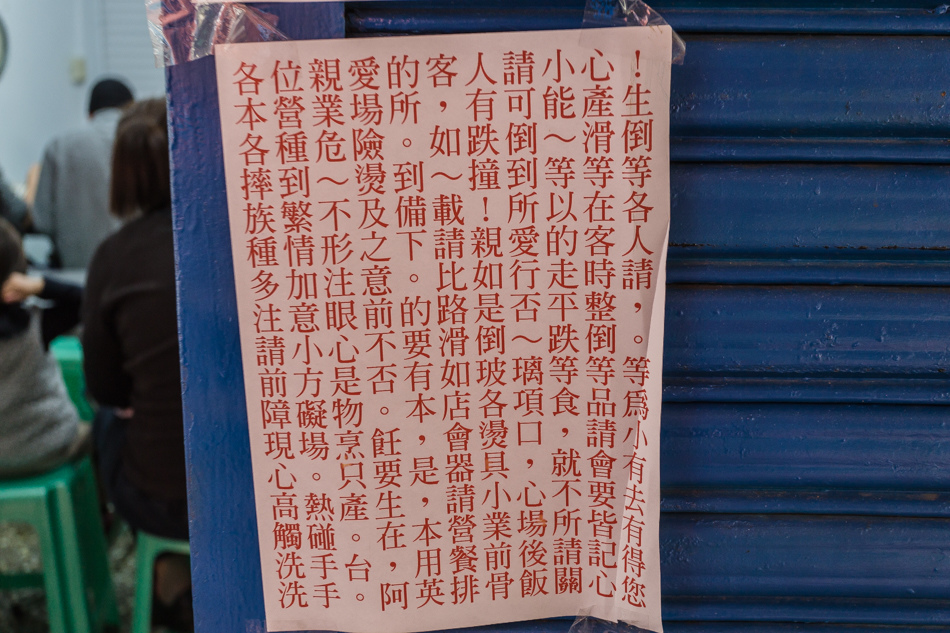 各位親愛的客人請小心！
本營業場所，有可能產生
各種危險。如跌倒～滑倒
摔到～燙到～撞到等等等
族繁不及備載！所以在各
種情形之下。請親愛的客人
多加注意。比如行走時請
注意眼前的路是否平整，
請小心不要滑倒～跌倒。
前方是否有如玻璃等等等
障礙物。本店各項食品爲
現場烹飪，會燙口，請小
心。只要是器具，就會有
高熱產生，請小心不要去
觸碰。在本營業場所皆有
洗手台，用餐前後請記得
洗手。阿英排骨飯關心您